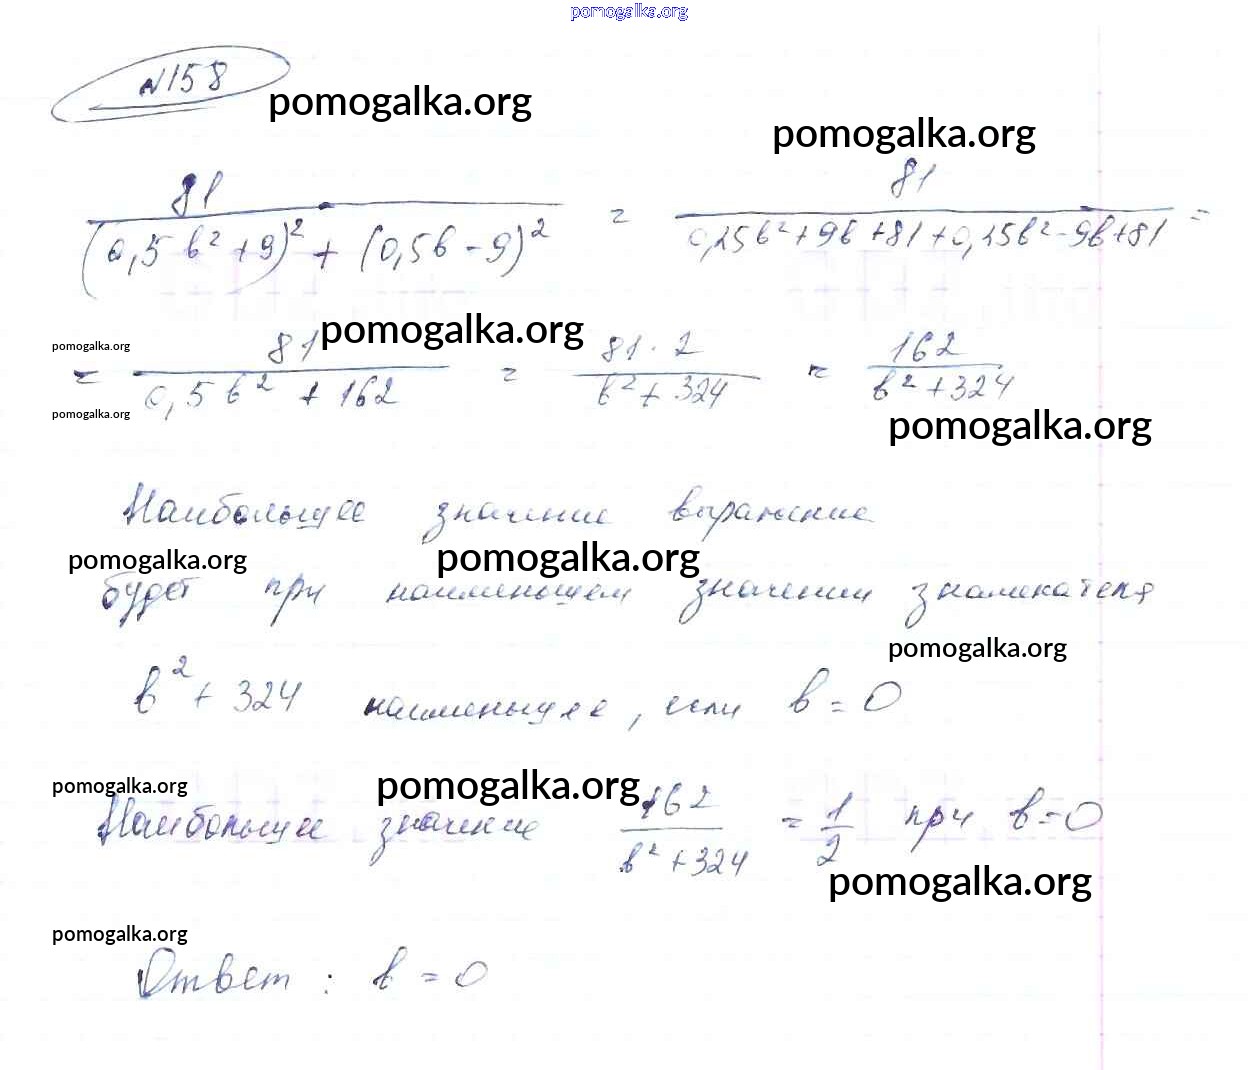 pomogalka.org
№158
pomogalka.org
pomogalka.org
81 / ((0,5b² + 9)² + (0,5b - 9)²) = 81 / (0,25b² + 9b + 81 + 0,25b² - 9b + 81) =
pomogalka.org
pomogalka.org
= 81 / (0,5b² + 162) = 81 · 2 / (b² + 324) = 162 / (b² + 324)
pomogalka.org
pomogalka.org
Наибольшее значение выражение
pomogalka.org
pomogalka.org
будет при наименьшем значении знаменателя
pomogalka.org
b² + 324 наименьшее, если b = 0
pomogalka.org
pomogalka.org
Наибольшее значение 162 / (b² + 324) = 1/2 при b = 0
pomogalka.org
pomogalka.org
Ответ: b = 0